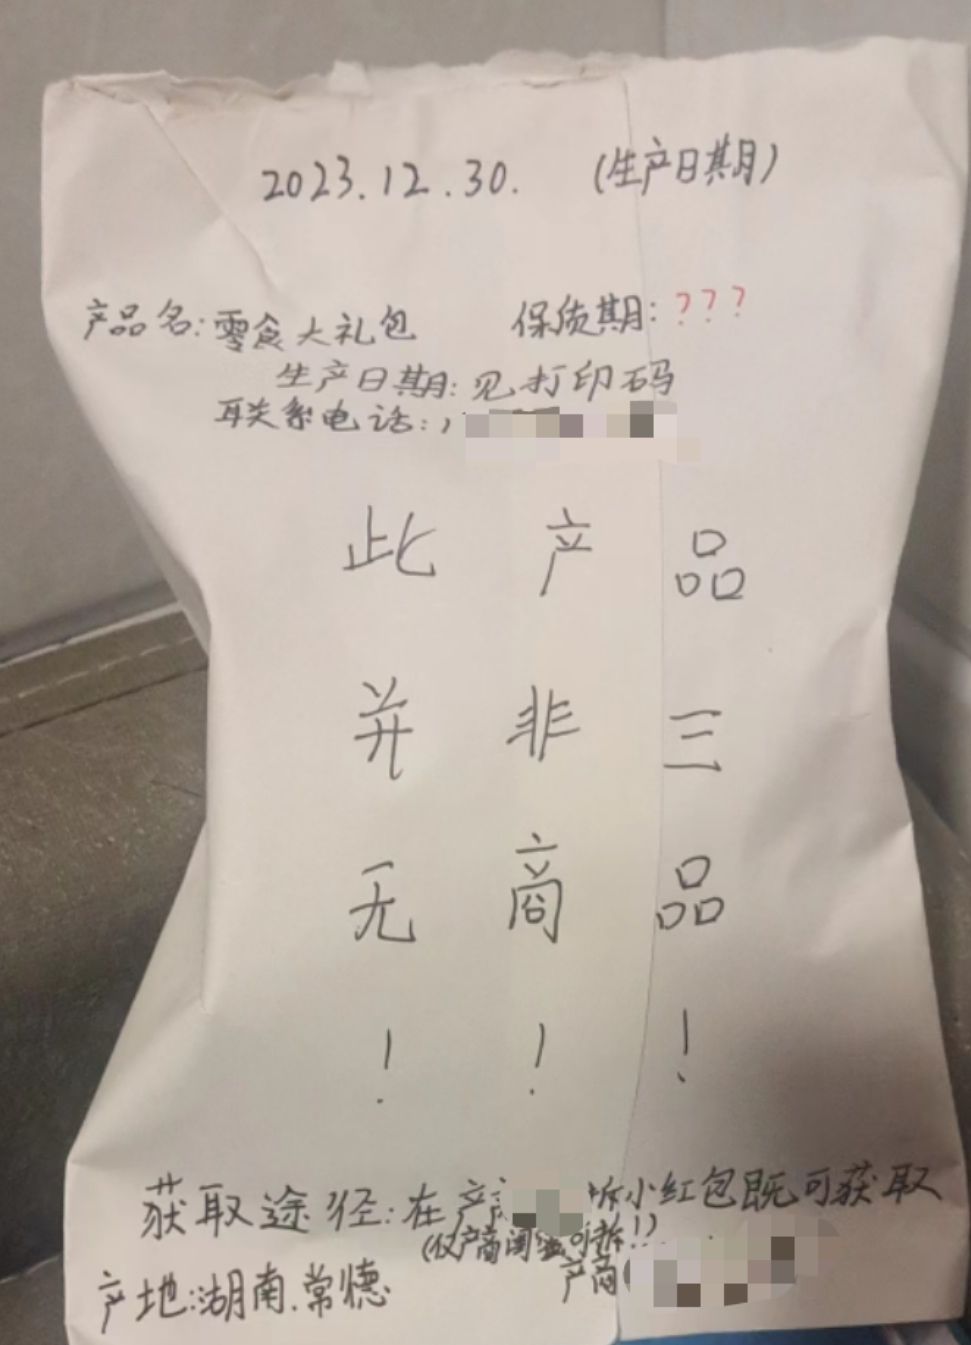 2023.12.30. (生产日期)
产品名:零食大礼包 保质期:???
生产日期:见打印码
联系电话:1
此产品
并非三
无商品
!!!
获取途径:在产商 拆小红包既可获取
(仅产商闺蜜可拆!!)
产地:湖南.常德 产商